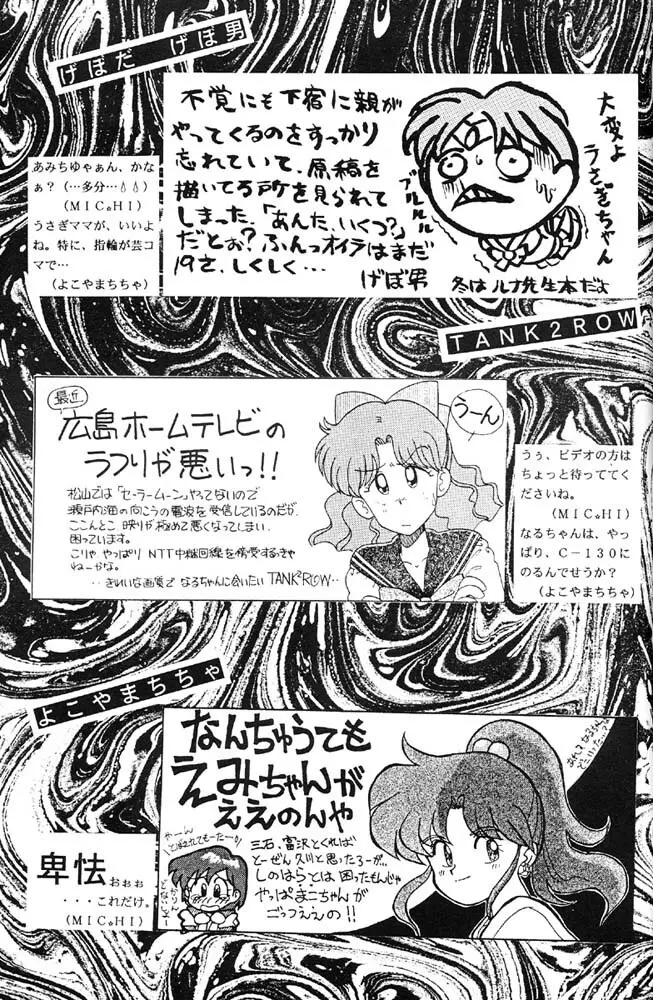 げぼだ げぼ男
不覚にも下宿に親が
やってくるのをすっかり
忘れていて、原稿を
描いてる所を見られて
しまった、「あんた、いくつ?」
だとぉ?ふんっオイラはまだ
19さ、しくしく…
げぼ男
大変よ
うさぎちゃん
ブルルルル
冬はルナ先生本だよ
あみちゆゃぁん、かな
ぁ?(…多分…💧💧)
(MIC。HI)
うさぎママが、いいよ
ね。特に、指輪が芸コ
マで…
(よこやまちちゃ)
TANK2ROW
最近
広島ホームテレビの
うつりが悪いっ!!
松山では「セーラームーン」やってないので
瀬戸内海の向こうの電波を受信しているのだが、
ここんとこ映りが極めて悪くなってしまい
困っています。
こりゃやっぱりNTT中継回線を傍受するきゃ
ねーかな。
‥きれいな画質でなるちゃんに会いたいTANK2ROW‥
うーん
うぅ、ビデオの方は
ちょっと待っててく
ださいね。
(MIC。HI)
なるちゃんは、やっ
ぱり、C-130に
のるんでせうか?
(よこやまちちゃ)
よこやまちちゃ
なんちゅうても
えみちゃんが
ええのんや
三石、富沢とくれば
とーぜん久川と思ったろーが、
しのはらとは困ったもんじゃ
やっぱまこちゃんが
ごっつええの!!
やーん
卑怯ぉぉぉ
・・・これだけ。
(MIC。HI)